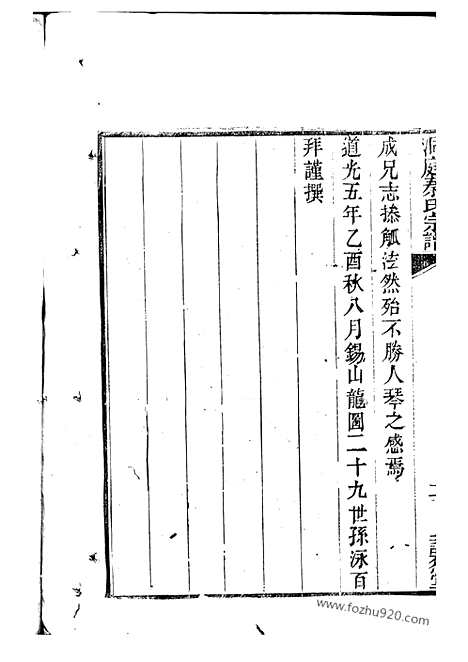 洞庭秦氏宗譜
成兄志捺觚泫然殆不勝人琴之感焉
道光五年乙酉秋八月錫山龍圖二十九世孫泳百
拜謹撰
www.fozhu920.com